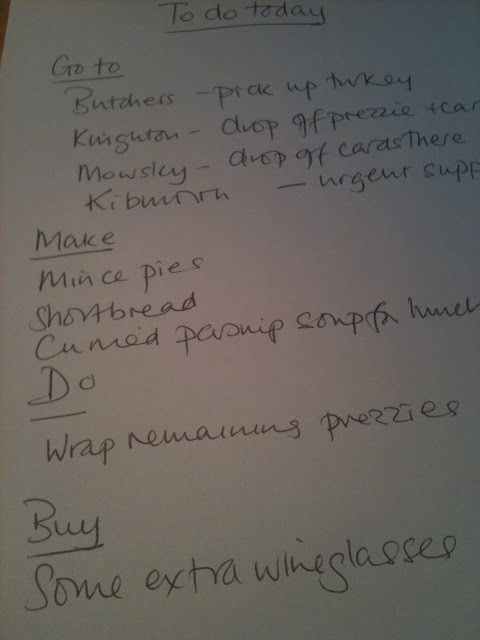 To do today
Go to
Butchers - pick up turkey
Knighton - drop off prezzie + car
Mowsley - drop off cards there
— urgent supp
Make
Mince pies
Shortbread
Curried parsnip soup for lunch
Do
Wrap remaining prezzies
Buy
Some extra wineglasses